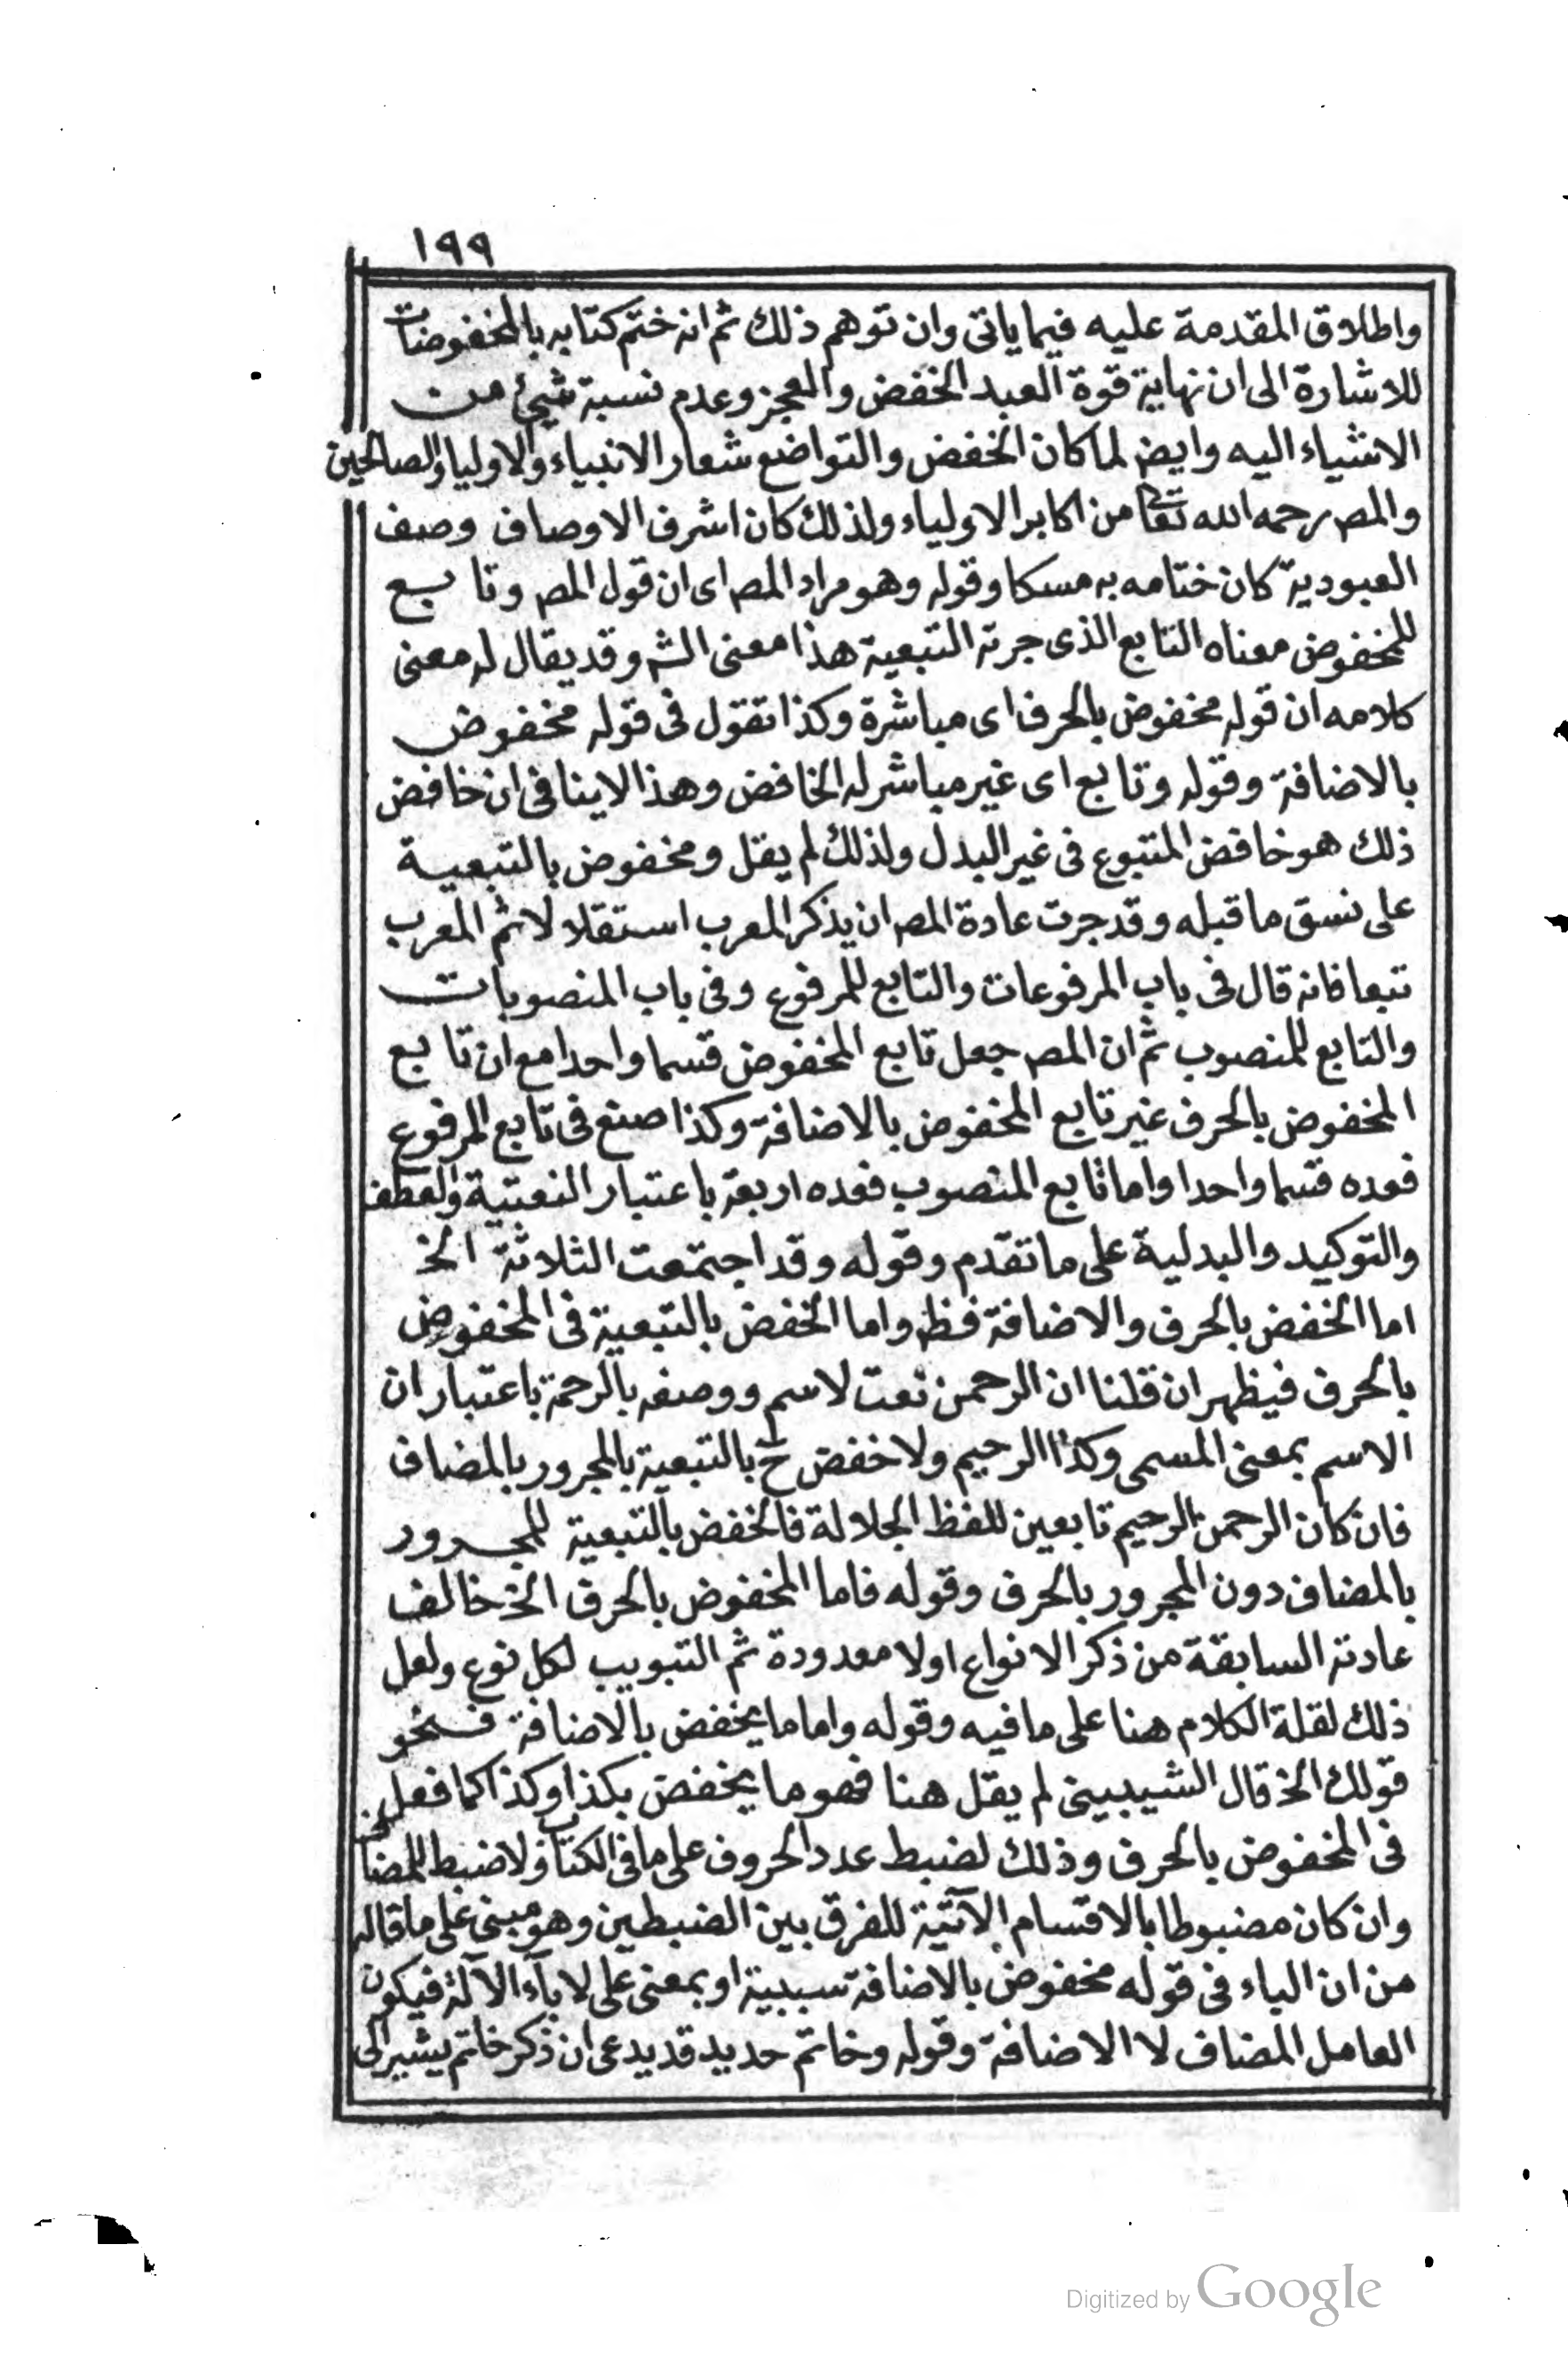 ١٩٩
واطلاق المقدمة عليه فيما ياتى وان توهم ذلك ثم انه ختم كتابه بالمخفوضات
للاشارة الى ان نهاية قوة العبد الخفض والعجز وعدم نسبة شيئ من
الاشياء اليه وايضر لما كان الخفض والتواضع شعار الانبياء والاولياء والصالحين
والمصر رحمه الله تعا من اكابر الاولياء ولذلك كان اشرف الاوصاف وصف
العبودية كان ختامه به مسكا وقوله وهو مراد المصر اى ان قول المصر وتابع
للمخفوض معناه التابع الذى جرته التبعية هذا معنى الشر وقد يقال له معنى
كلامه ان قوله مخفوض بالحرف اى مباشرة وكذا تقول فى قوله مخفوض
بالاضافة وقوله وتابع اى غير مباشر له الخافض وهذا لاينافى ان خافض
ذلك هو خافض المتبوع فى غير البدل ولذلك لم يقل ومخفوض بالتبعية
على نسق ما قبله وقد جرت عادة المصر ان يذكر المعرب استقلالا ثم المعرب
تبعا فانه قال فى باب المرفوعات والتابع للمرفوع وفى باب المنصوبات
والتابع للمنصوب ثم ان المصر جعل تابع المخفوض قسما واحدا مع ان تابع
المخفوض بالحرف غير تابع المخفوض بالاضافة وكذا صنع فى تابع المرفوع
فعده قسما واحدا واما تابع المنصوب فعده اربعة باعتبار النعتية والعطف
والتوكيد والبدلية على ما تقدم وقوله وقد اجتمعت الثلاثة الخ
اما الخفض بالحرف والاضافة فظر واما الخفض بالتبعية فى المخفوض
بالحرف فيظهر ان قلنا ان الرحمن نعت لاسم ووصفه بالرحمة باعتبار ان
الاسم بمعنى المسمى وكذا الرحيم ولا خفض ح بالتبعية بالمجرور بالمضاف
فان كان الرحمن الرحيم تابعين للفظ الجلالة فالخفض بالتبعية للمجرور
بالمضاف دون المجرور بالحرف وقوله فاما المخفوض بالحرف الخ خالف
عادته السابقة من ذكر الانواع اولا معدودة ثم التبويب لكل نوع ولعل
ذلك لقلة الكلام هنا على ما فيه وقوله واما ما يخفض بالاضافة فنحو
قولك الخ قال الشيبينى لم يقل هنا فهو ما يخفض بكذا وكذا كما فعل
فى المخفوض بالحرف وذلك لضبط عدد الحروف على ما فى الكتاب ولا ضبط للمضاف
وان كان مضبوطا بالاقسام الآتية للفرق بين الضبطين وهو مبنى على ما قاله
من ان الباء فى قوله مخفوض بالاضافة سببية او بمعنى على لا باء الآلة فيكون
العامل المضاف لا الاضافة وقوله وخاتم حديد قد يدعى ان ذكر خاتم يشير الى
Digitized by Google